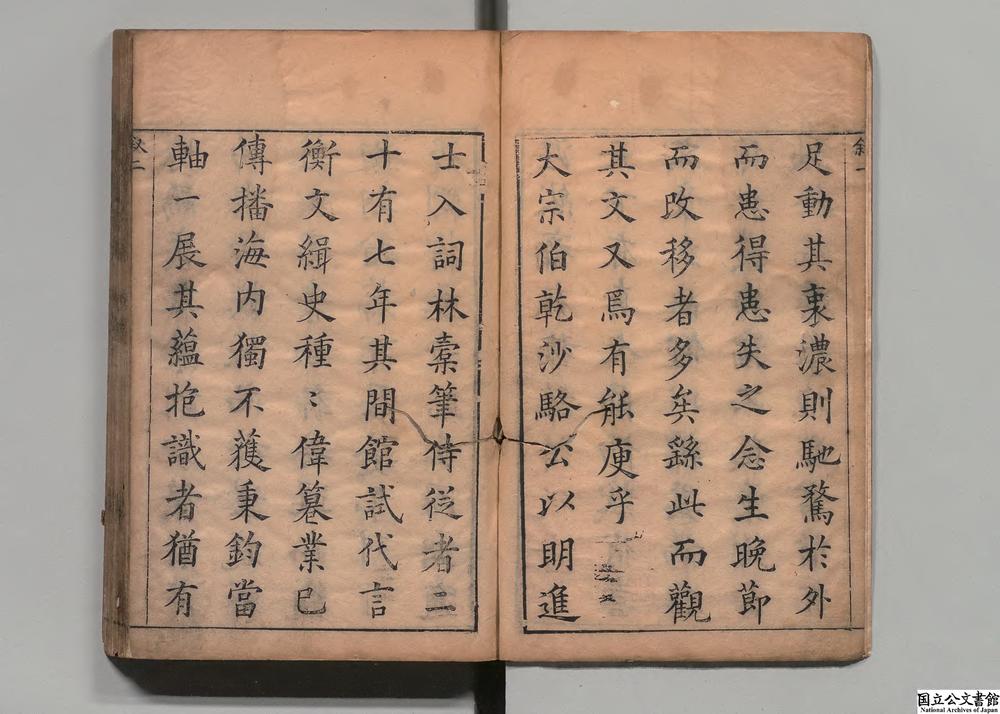 足動其衷濃則馳騖於外
而患得患失之念生晩節
而改移者多矣繇此而觀
其文又焉有能庾乎
大宗伯乾沙駱公以明進
士入詞林橐筆侍從者二
十有七年其間館試代言
衡文緝史種〻偉纂業已
傳播海內獨不獲秉鈞當
軸一展其蘊抱識者猶有
敘二
国立公文書館
National Archives of Japan